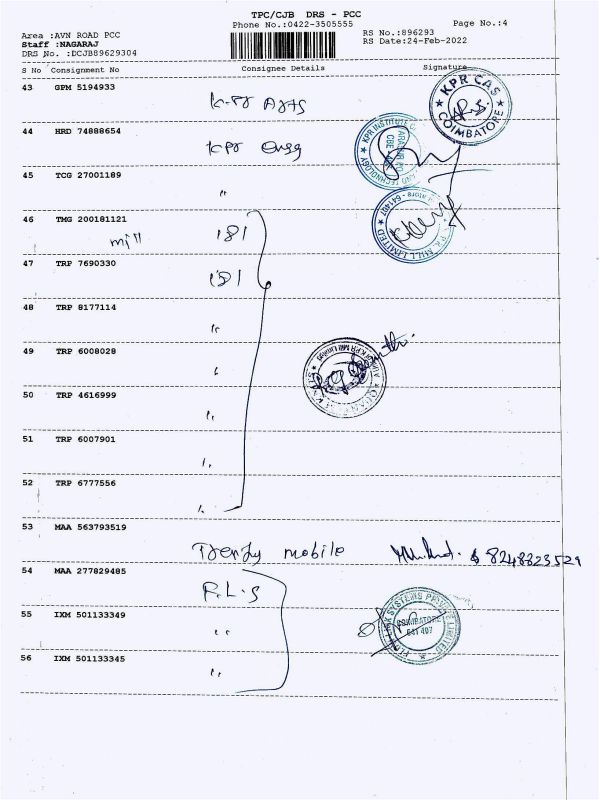 TPC/CJB DRS - PCC
Phone No.:0422-3505555
Page No.:4
Area :AVN ROAD PCC
RS No.:896293
Staff :NAGARAJ
RS Date:24-Feb-2022
DRS No. :DCJB89629304
S No Consignment No Consignee Details Signature
43 GPM 5194933
KPR CAS
COIMBATORE
44 HRD 74888654
KPR INSTITUTE OF
AND TECHNOLOGY
45 TCG 27001189
"
46 TMG 200181121
mill 181
MILL LIMITED
47 TRP 7690330
181
48 TRP 8177114
"
49 TRP 6008028
"
50 TRP 4616999
"
51 TRP 6007901
"
52 TRP 6777556
"
53 MAA 563793519
mobile 8248823529
54 MAA 277829485
F.L.S
55 IXM 501133349
"
SYSTEMS PRIVATE LIMITED
COIMBATORE
641 407
56 IXM 501133345
"